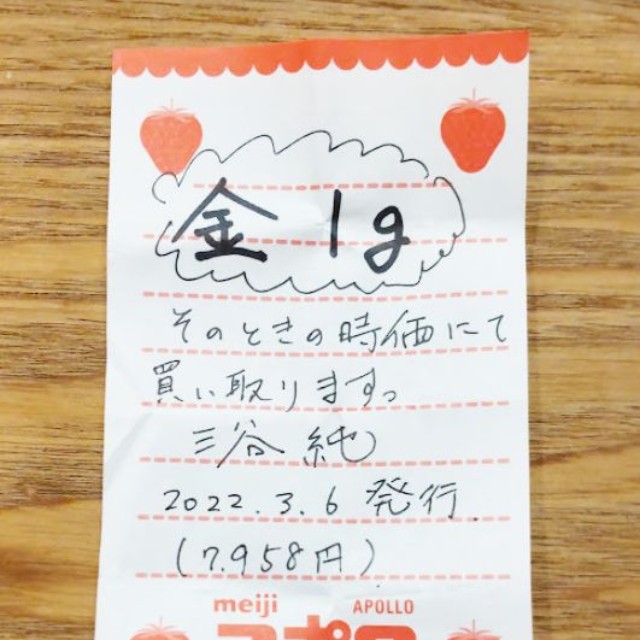 金 1g
そのときの時価にて
買い取ります。
三谷 純
2022.3.6 発行.
(7.958円)
meiji APOLLO
アポロ